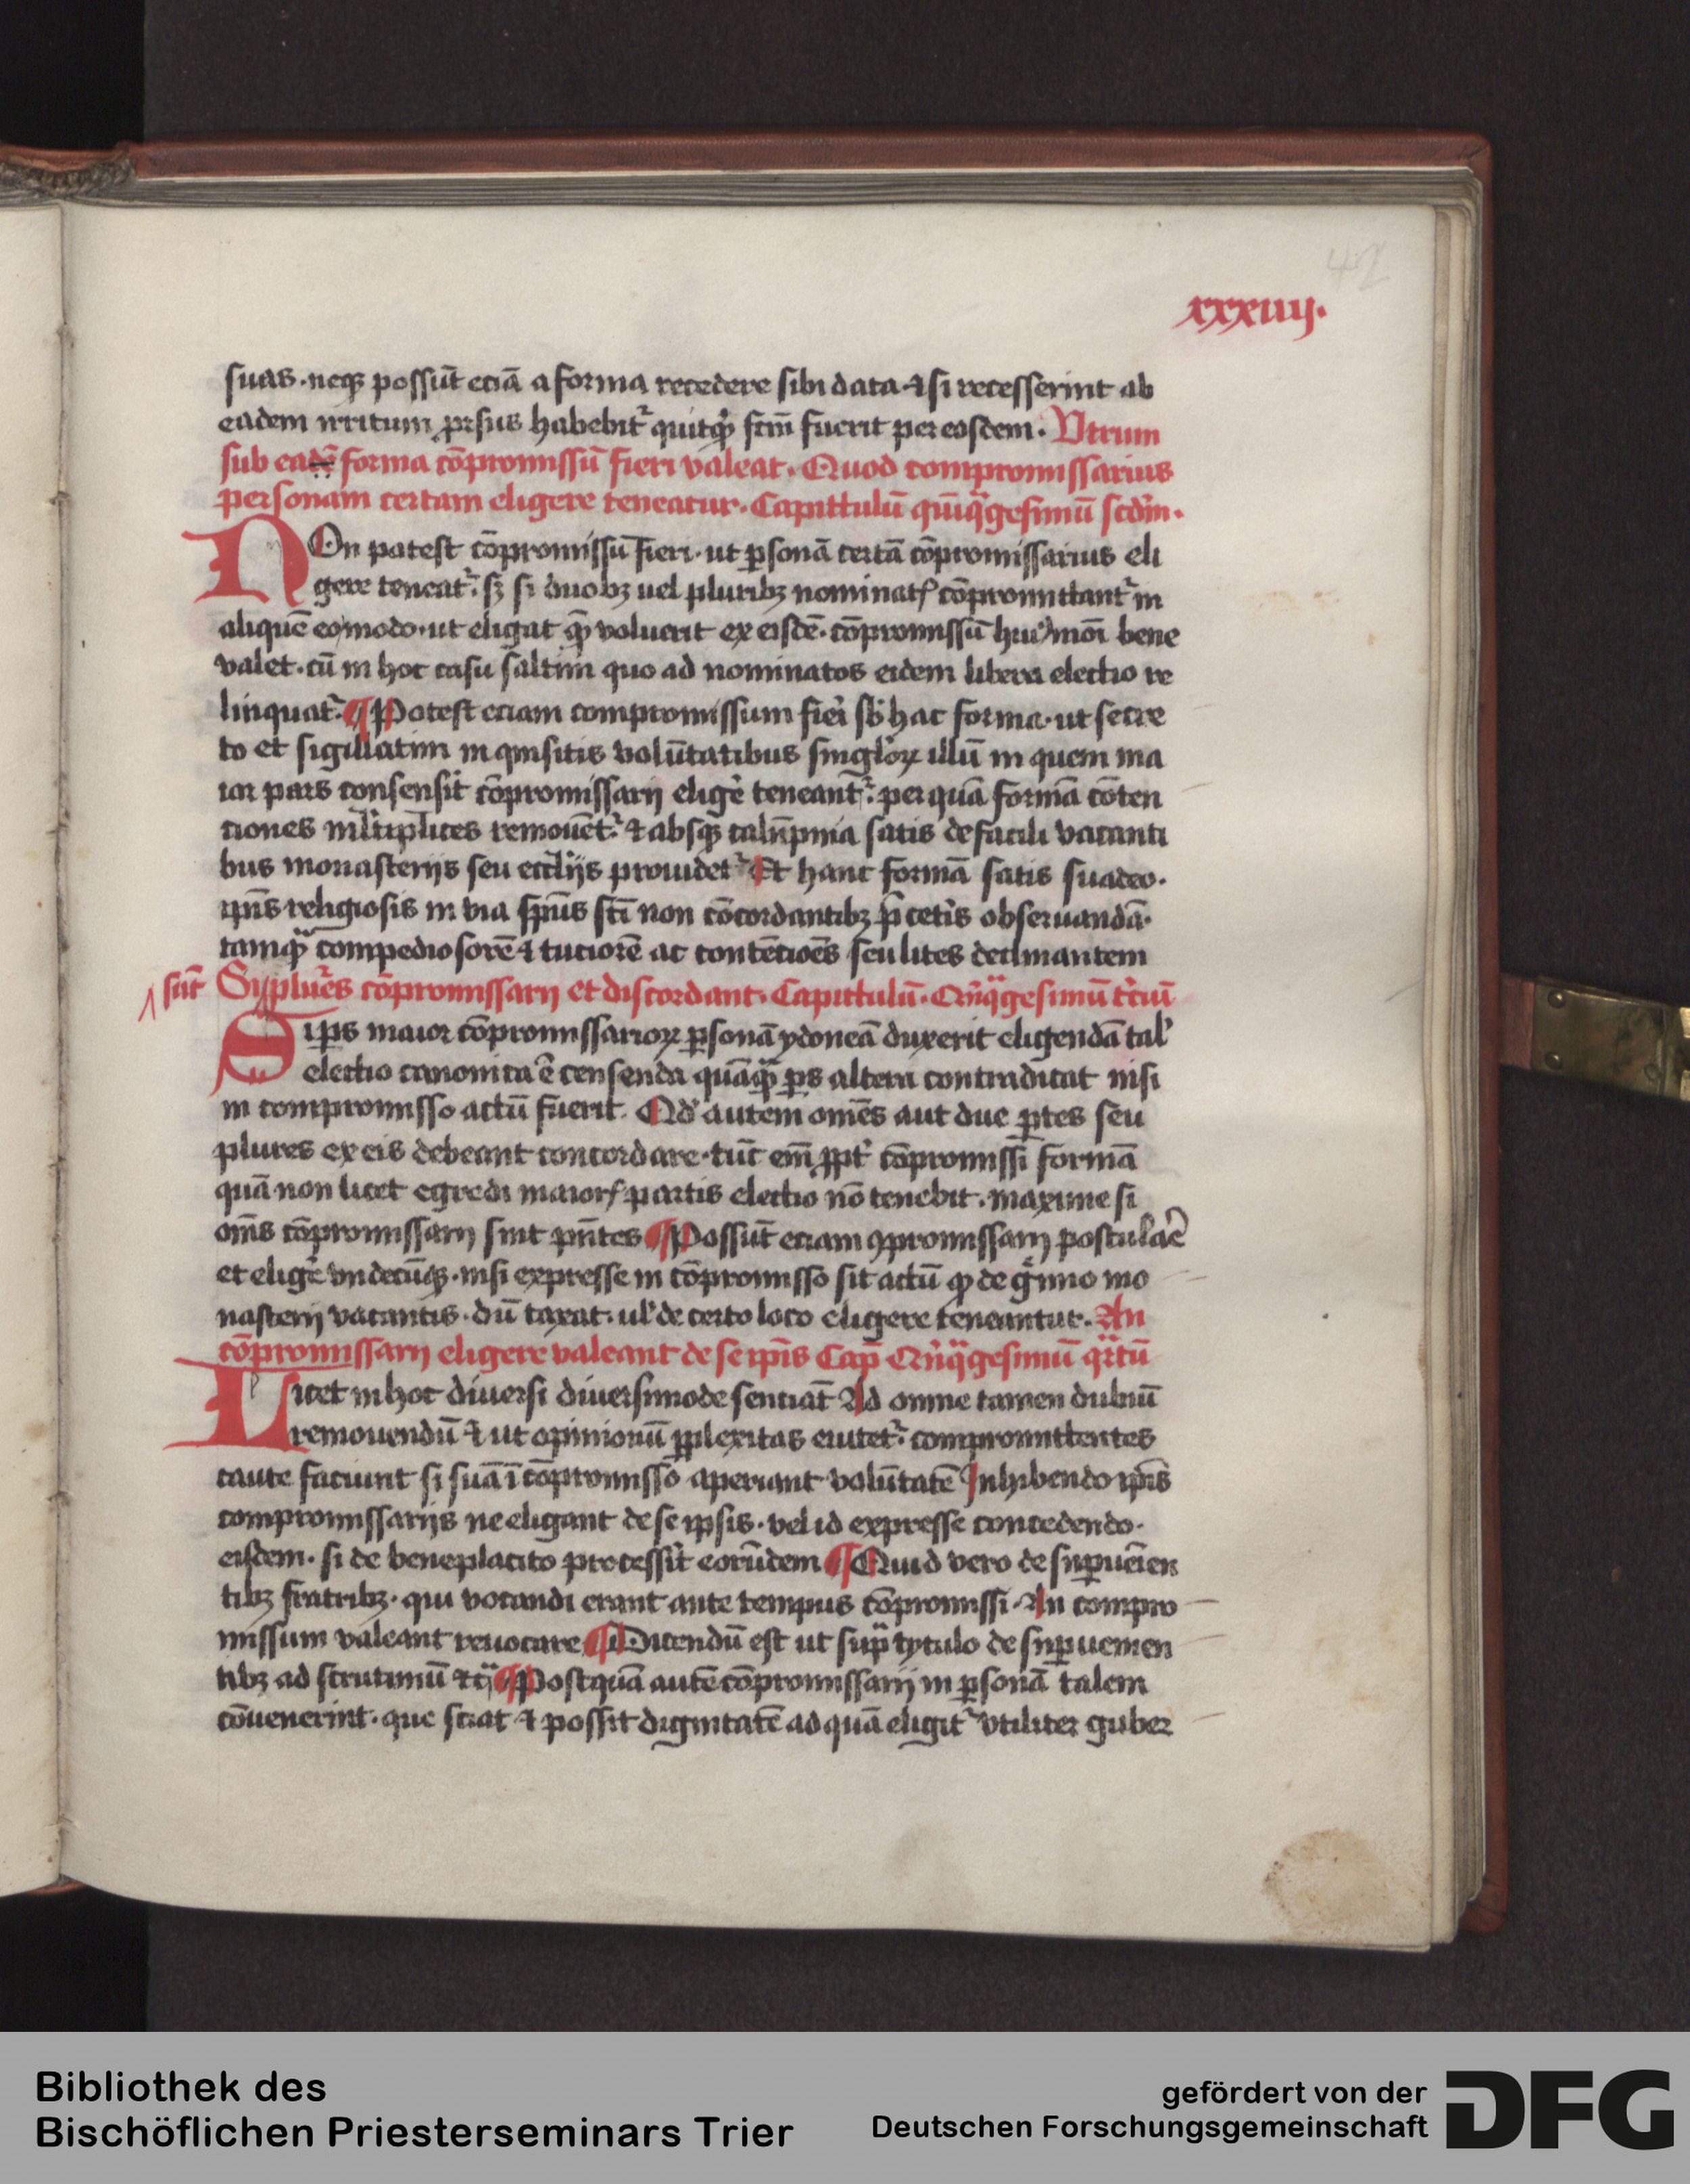 42
xxxiiij.
suas · neqꝫ possūt eciā a forma recedere sibi data ⁊ si recesserint ab
eadem irritum ꝓrsus habebit᷑ quitꝗ̄ fcm̄ fuerit per eosdem · Vtrum
sub eadē forma cōpromissū fieri valeat. Quod compromissarius
personam certam eligere teneatur. Capittulū quīq̄gesimū scd̄m.
NOn potest cōpromissū fieri · ut ꝑsonā certā cōpromissarius eli
gere teneat᷑. sꝫ si duobꝫ uel pluribꝫ nominat cōpromittant᷑ in
aliquē eo modo · ut eligat quē voluerit ex eisdē · cōpromissū hui᷒modi bene
valet · cū in hoc casu saltim quo ad nominatos eidem libera electio re
linquat᷑. ¶ Potest eciam compromissum fieri sb̄ hac forma · ut secre
to et sigillatim inquisitis volūtatibus singlorꝝ illū in quem ma
ior pars consensit cōpromissarij eligere teneant᷑. per quā formā cōten
ciones mltiplices remouēt᷑. ⁊ absqꝫ calūpnia satis de facili vacanti
bus monasterijs seu eccl̄ijs prouidet᷑ Et hanc formā satis suadeo.
ip̄is religiosis in via sp̄us sc̄i non cōcordantibꝫ p̄ cetis obseruandā.
tamꝗ̄ compediosorē ⁊ tuciorē ac contēcioēs seu lites declinantem
Sy plures sūt cōpromissarij et discordant. Capittulū. Quīq̄gesimū t̄ciū
Si ꝑs maior cōpromissariorꝝ ꝑsonā ydoneā duxerit eligendā tal
electio canonica ē censenda quāꝗ̄ ꝑs altera contradicat nisi
in compromisso actū fuerit. Qd̄ autem omēs aut due ꝑtes seu
plures ex eis debeant concordare · tūc em̄ ꝓpt cōpromissi formā
quā non licet egredi maior partis electio nō tenebit. maxime si
om̄s cōpromissarij sint p̄ntes ¶ Possūt eciam ꝯpromissarij postulare
et eligere vndecūqꝫ · nisi expresse in cōpromisso sit actū ꝙ de gremio mo
nasterij vacantis · dū taxat · ul̄ de certo loco eligere teneantur. An
cōpromissarij eligere valeant de se ip̄is Cap̄ Quīq̄gesimū q̄rtū
Licet in hoc diuersi diuersimode senciāt Ad omne tamen dubiū
remouendū ⁊ ut opinionū ꝑplexitas euitet᷑. compromittentes
caute faciunt si suā ī cōpromisso aperiant volūtatē Inhibendo ip̄is
compromissarijs ne eligant de se ipsis · vel id expresse concedendo.
eisdem. si de beneplacito processit eorūdem ¶ Quid vero de suꝑuēien
tibꝫ fratribꝫ. qui vocandi erant ante tempus cōpromissi. An compro
missum valeant reuocare ¶ Dicendū est ut sup̄ tytulo de suꝑuenien
tibꝫ ad scrutiniū ⁊c̄ ¶ Postquā autē cōpromissarij in ꝑsonā talem
cōuenerint · que sciat ⁊ possit dignitatē ad quā eligit᷑ vtiliter guber
Bibliothek des
Bischöflichen Priesterseminars Trier
gefördert von der
Deutschen Forschungsgemeinschaft
DFG